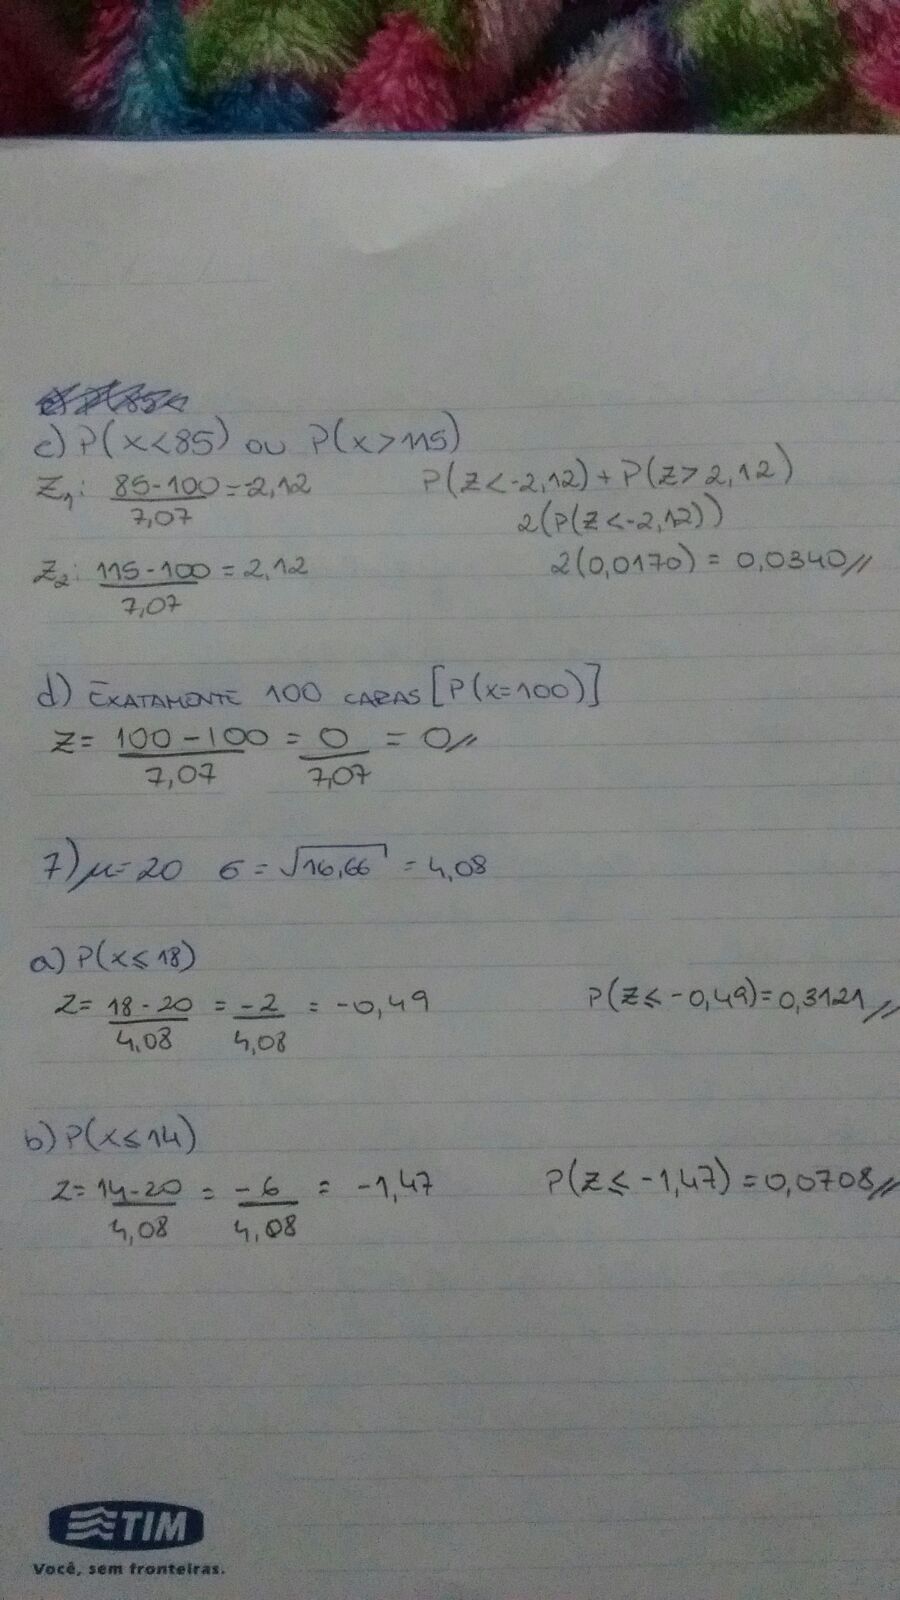 c) P(x<85) ou P(x>115)
Z₁: 85-100/7,07 = -2,12
P(Z<-2,12) + P(Z>2,12)
2(P(Z<-2,12))
2(0,0170) = 0,0340//
Z₂: 115-100/7,07 = 2,12
d) EXATAMENTE 100 CARAS [P(x=100)]
Z = 100-100/7,07 = 0/7,07 = 0//
7) μ=20 σ = √16,66 = 4,08
a) P(x≤18)
Z = 18-20/4,08 = -2/4,08 = -0,49
P(Z≤-0,49)=0,3121//
b) P(x≤14)
Z = 14-20/4,08 = -6/4,08 = -1,47
P(Z≤-1,47)=0,0708//
TIM
Você, sem fronteiras.